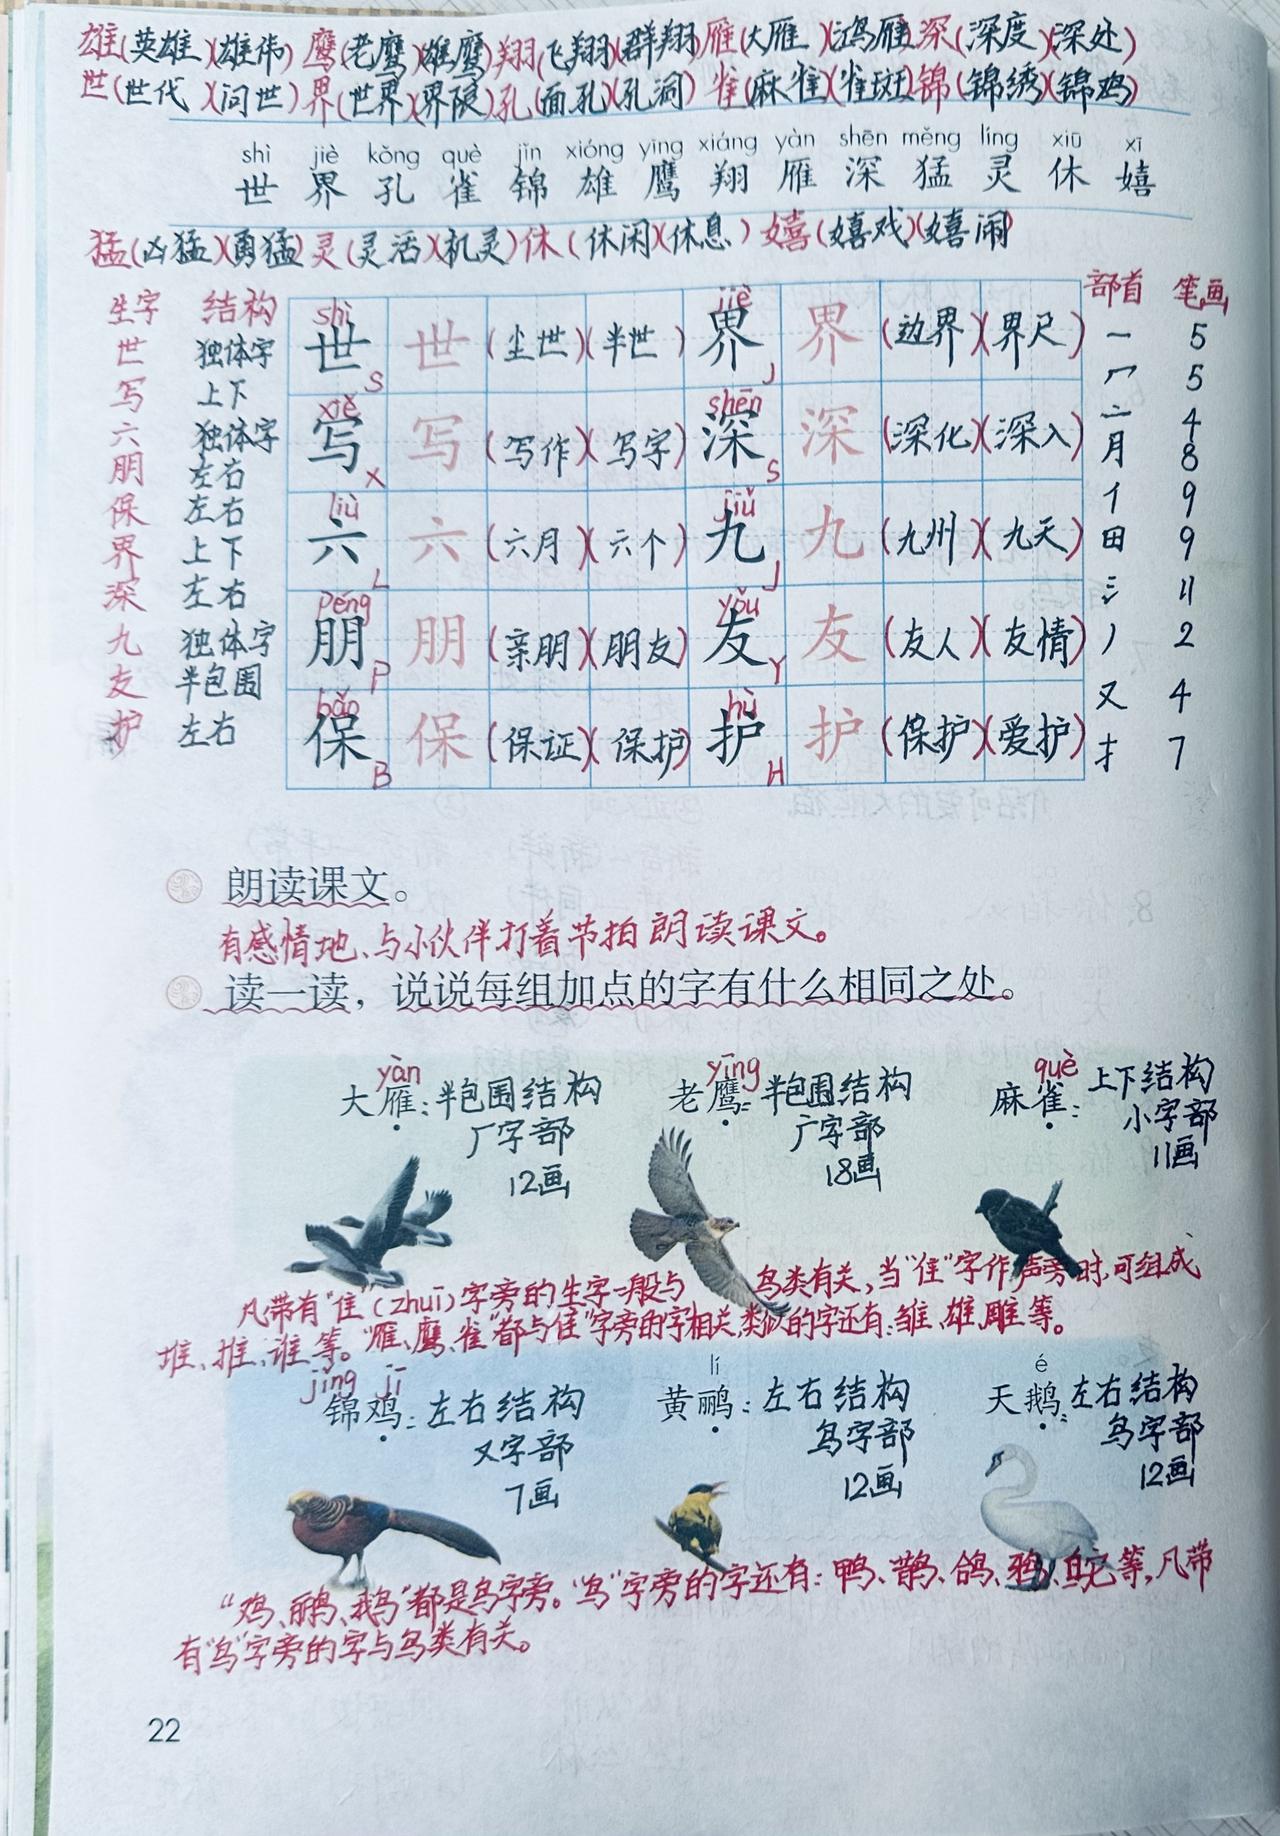 雄(英雄)(雄伟)鹰(老鹰)(雄鹰)翔(飞翔)(群翔)雁(大雁)(鸿雁)深(深度)(深处)
世(世代)(问世)界(世界)(界限)孔(面孔)(孔洞)雀(麻雀)(雀斑)锦(锦绣)(锦鸡)
shì jiè kǒng què jǐn xióng yīng xiáng yàn shēn měng líng xiū xī
世 界 孔 雀 锦 雄 鹰 翔 雁 深 猛 灵 休 嬉
猛(凶猛)(勇猛)灵(灵活)(机灵)休(休闲)(休息)嬉(嬉戏)(嬉闹)
生字 结构 部首 笔画
shì jiè
世 独体字 世 S 世 (尘世)(半世) 界 J 界 (边界)(界尺) 一 5
写 上下 冖 5
xiě shēn
六 独体字 写 X 写 (写作)(写字) 深 S 深 (深化)(深入) 亠 4
朋 左右 月 8
liù jiǔ
保 左右 亻 9
界 上下 六 L 六 (六月)(六个) 九 J 九 (九州)(九天) 田 9
深 左右 氵 11
péng yǒu
九 独体字 朋 P 朋 (亲朋)(朋友) 友 Y 友 (友人)(友情) 丿 2
友 半包围 又 4
bǎo hù
护 左右 保 B 保 (保证)(保护) 护 H 护 (保护)(爱护) 扌 7
朗读课文。
有感情地、与小伙伴打着节拍朗读课文。
读一读，说说每组加点的字有什么相同之处。
yàn yīng què
大雁:半包围结构 老鹰:半包围结构 麻雀:上下结构
厂字部 广字部 小字部
12画 18画 11画
凡带有“隹”(zhuī)字旁的生字一般与鸟类有关,当“隹”字作声旁时,可组成
堆、推、谁等。“雁、鹰、雀”都与“隹”字旁的字相关,类似的字还有:雏、雄、雕等。
jǐng jī lí é
锦鸡:左右结构 黄鹂:左右结构 天鹅:左右结构
又字部 鸟字部 鸟字部
7画 12画 12画
“鸡、鹂、鹅”都是鸟字旁。“鸟”字旁的字还有:鸭、鹊、鸽、鸦、鸵等,凡带
有“鸟”字旁的字与鸟类有关。
22